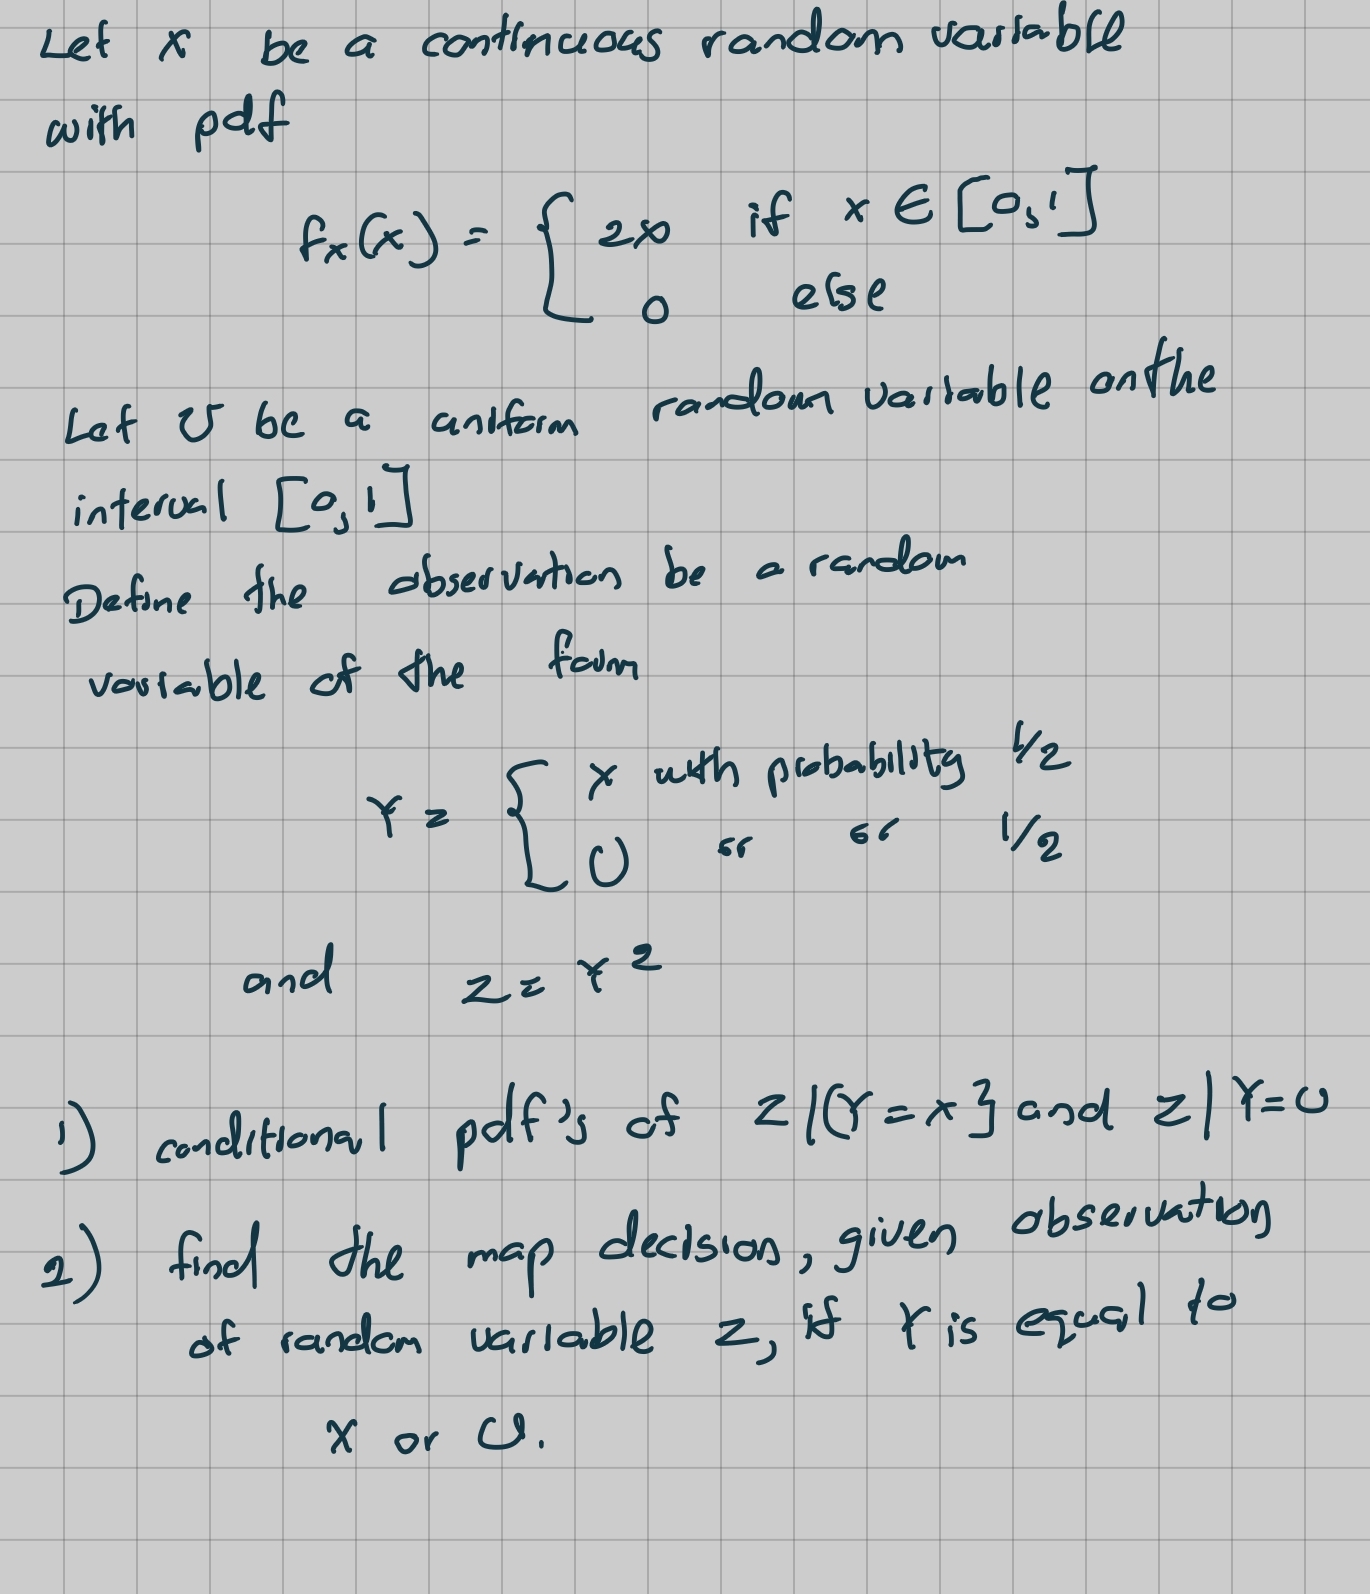 Let x be a continuous random variable
with pdf
fx(x) = { 2x if x ∈ [0,1]
0 else
Let U be a uniform random variable on the
interval [0,1]
Define the observation be a random
variable of the form
Y = { X with probability 1/2
U " " 1/2
and Z = Y²
1) conditional pdf's of Z|{Y=X} and Z|Y=U
2) find the map decision, given observation
of random variable Z, if Y is equal to
X or U.